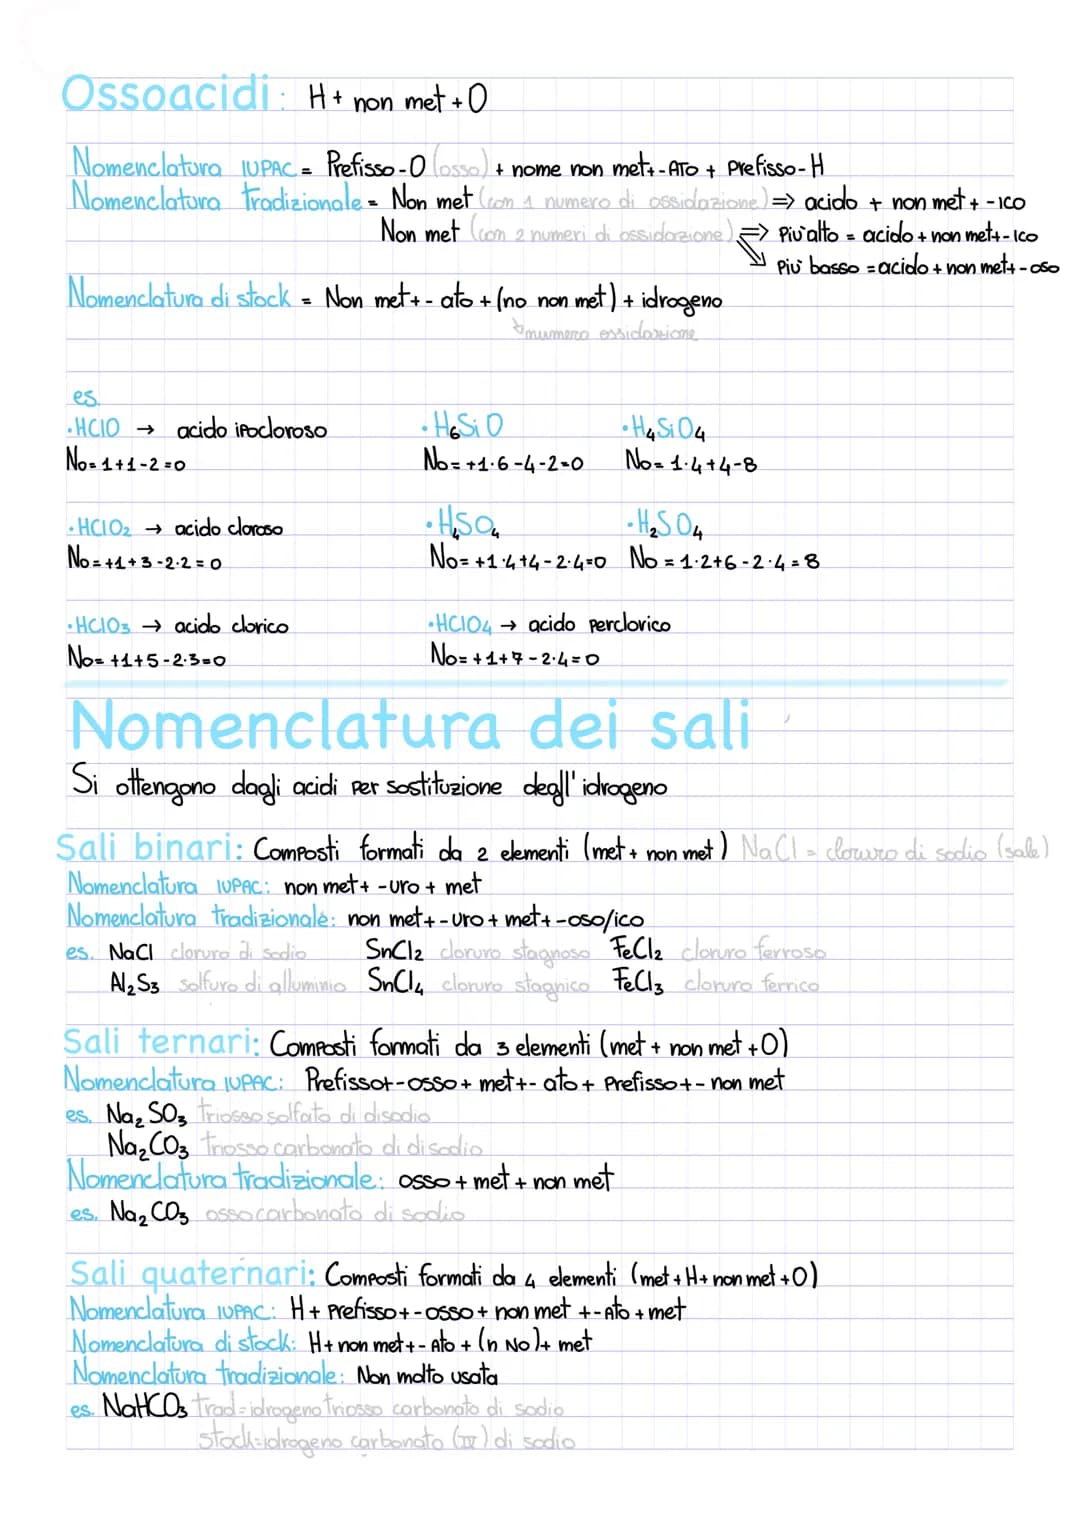 Ossoacidi: H + non met + O
Nomenclatura IUPAC = Prefisso-O (osso) + nome non met+-ATO + Prefisso-H
Nomenclatura tradizionale = Non met (con 1 numero di ossidazione) ⇒ acido + non met + -ICO
Non met (con 2 numeri di ossidazione) ⇒ Più alto = acido + non met+-ICO
⇘ Più basso = acido + non met+-OSO
Nomenclatura di stock = Non met+-ato + (no non met) + idrogeno
↳ numero ossidazione
es.
•HClO → acido ipocloroso •H₆SiO •H₄SiO₄
No= 1+1-2=0 No= +1·6-4-2=0 No= 1·4+4-8
•HClO₂ → acido cloroso •H₄SO₄ •H₂SO₄
No= +1+3-2·2=0 No= +1·4+4-2·4=0 No= 1·2+6-2·4=8
•HClO₃ → acido clorico •HClO₄ → acido perclorico
No= +1+5-2·3=0 No= +1+7-2·4=0
Nomenclatura dei sali
Si ottengono dagli acidi per sostituzione degll'idrogeno
Sali binari: Composti formati da 2 elementi (met + non met) NaCl = cloruro di sodio (sale)
Nomenclatura IUPAC: non met+ -uro + met
Nomenclatura tradizionale: non met+-uro + met+-oso/ico
es. NaCl cloruro di sodio SnCl₂ cloruro stagnoso FeCl₂ cloruro ferroso
Al₂S₃ solfuro di alluminio SnCl₄ cloruro stagnico FeCl₃ cloruro ferrico
Sali ternari: Composti formati da 3 elementi (met + non met + O)
Nomenclatura IUPAC: Prefisso+-osso + met+-ato + Prefisso+-non met
es. Na₂SO₃ triosso solfato di disodio
Na₂CO₃ triosso carbonato di disodio
Nomenclatura tradizionale: osso + met + non met
es. Na₂CO₃ ossocarbonato di sodio
Sali quaternari: Composti formati da 4 elementi (met + H + non met + O)
Nomenclatura IUPAC: H + Prefisso+-osso + non met +-Ato + met
Nomenclatura di stock: H + non met+-Ato + (n No)+ met
Nomenclatura tradizionale: Non molto usata
es. NaHCO₃ Trad=idrogeno triosso carbonato di sodio
stock=idrogeno carbonato (IV) di sodio